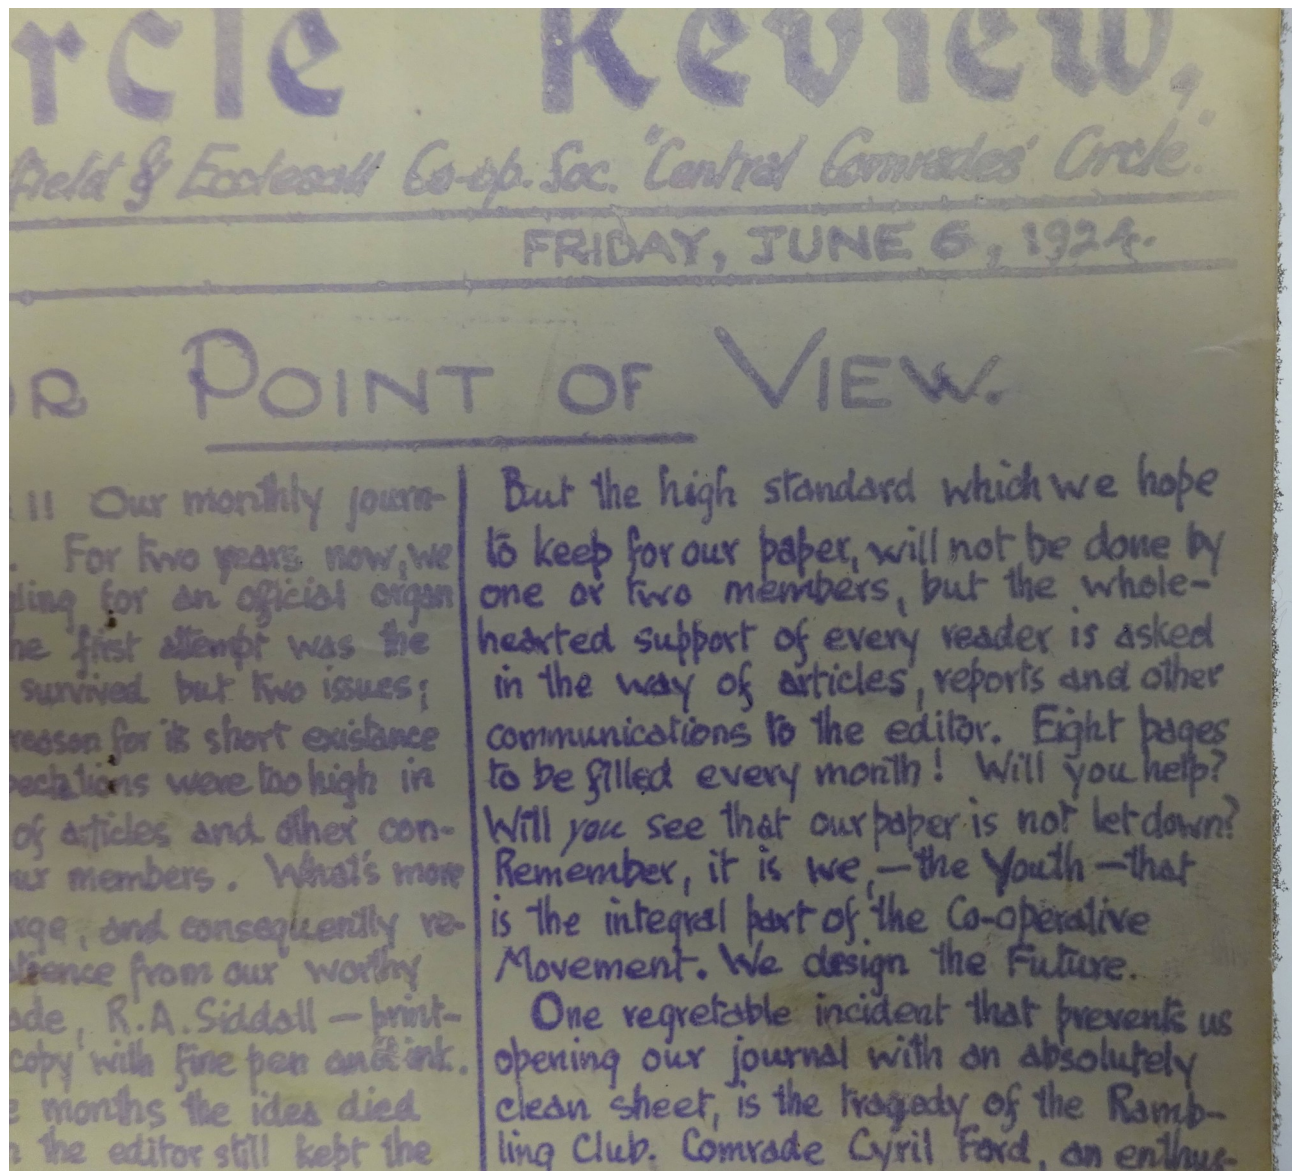 rcle Review.
field & Ecclesall Co-op. Soc. "Central Comrades' Circle."
FRIDAY, JUNE 6, 1924.
OR POINT OF VIEW.
!! Our monthly journ-
. For two years now, we
ling for an official organ
he first attempt was the
survived but two issues;
reason for its short existance
pectations were too high in
of articles and other con-
ur members. What's more
rge, and consequently re-
atience from our worthy
ade, R.A. Siddall — print-
copy with fine pen and ink.
e months the idea died
n the editor still kept the
But the high standard which we hope
to keep for our paper, will not be done by
one or two members, but the whole-
hearted support of every reader is asked
in the way of articles, reports and other
communications to the editor. Eight pages
to be filled every month! Will you help?
Will you see that our paper is not let down?
Remember, it is we, — the Youth — that
is the integral part of the Co-operative
Movement. We design the Future.
One regretable incident that prevents us
opening our journal with an absolutely
clean sheet, is the tragedy of the Ramb-
ling Club. Comrade Cyril Ford, an enthus-